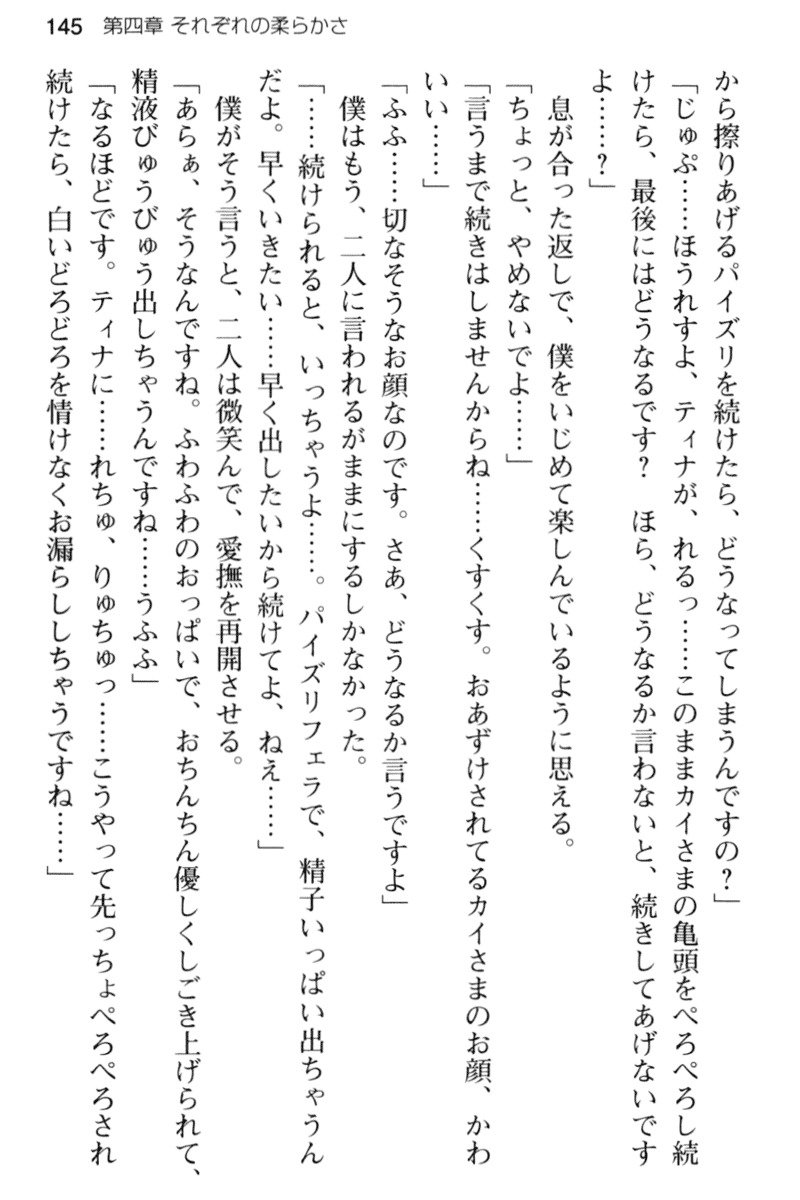 145 第四章 それぞれの柔らかさ
から擦りあげるパイズリを続けたら、どうなってしまうんですの?」
「じゅぷ……ほうれすよ、ティナが、れるっ……このままカイさまの亀頭をぺろぺろし続
けたら、最後にはどうなるです? ほら、どうなるか言わないと、続きしてあげないです
よ……?」
息が合った返しで、僕をいじめて楽しんでいるように思える。
「ちょっと、やめないでよ……」
「言うまで続きはしませんからね……くすくす。おあずけされてるカイさまのお顔、かわ
いい……」
「ふふ……切なそうなお顔なのです。さあ、どうなるか言うですよ」
僕はもう、二人に言われるがままにするしかなかった。
「……続けられると、いっちゃうよ……。パイズリフェラで、精子いっぱい出ちゃうん
だよ。早くいきたい……早く出したいから続けてよ、ねえ……」
僕がそう言うと、二人は微笑んで、愛撫を再開させる。
「あらぁ、そうなんですね。ふわふわのおっぱいで、おちんちん優しくしごき上げられて、
精液びゅうびゅう出しちゃうんですね……うふふ」
「なるほどです。ティナに……れちゅ、りゅちゅっ……こうやって先っちょぺろぺろされ
続けたら、白いどろどろを情けなくお漏らししちゃうですね……」